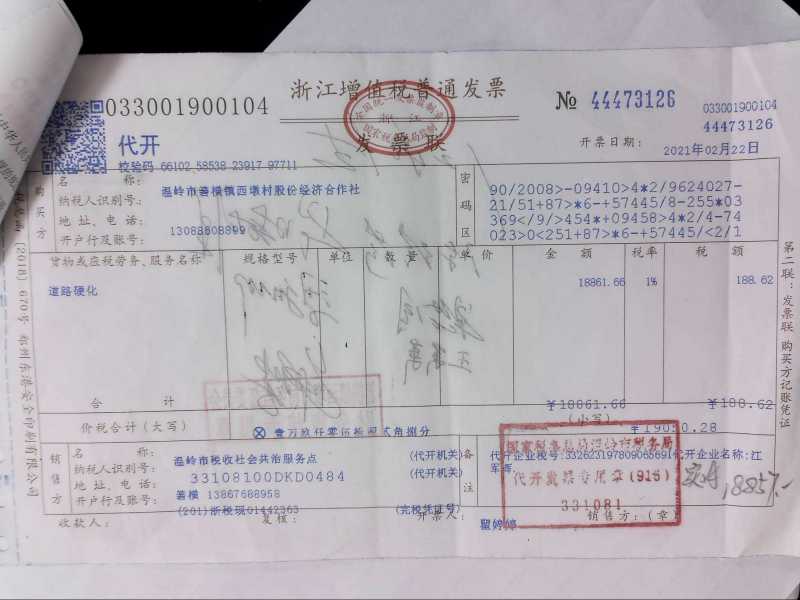 浙江增值税普通发票
033001900104
№ 44473126
033001900104
44473126
代开
发票联
全国统一发票监制章
浙江
国家税务总局监制
开票日期: 2021年02月22日
校验码 66102 58538 23917 97711
购买方
名称: 温岭市箬横镇西墩村股份经济合作社
纳税人识别号:
地址、电话: 13088608899
开户行及账号:
密码区
90/2008>-09410>4*2/9624027-
21/51+87>*6-+57445/8-255*03
369</9/>454*+09458>4*2/4-74
023>0<251+87>*6-+57445/<2/1
货物或应税劳务、服务名称 规格型号 单位 数量 单价 金额 税率 税额
道路硬化 18861.66 1% 188.62
合计 ¥18861.66 ¥188.62
价税合计(大写) ⊗ 壹万玖仟零伍拾圆贰角捌分 (小写) ¥19050.28
销售方
名称: 温岭市税收社会共治服务点 (代开机关)
纳税人识别号: 33108100DKD0484 (代开机关)
地址、电话: 箬横 13867688958
开户行及账号: (201)浙税现01442363 (完税凭证号)
备注
代开企业税号:332623197809065691代开企业名称:江
军
国家税务总局温岭市税务局
代开发票专用章(915)
331081
实付 18857.-
收款人: 复核: 开票人: 瞿婷婷 销售方:(章)
第二联:发票联 购买方记账凭证
税总函〔2018〕670号 郑州东港安全印刷有限公司